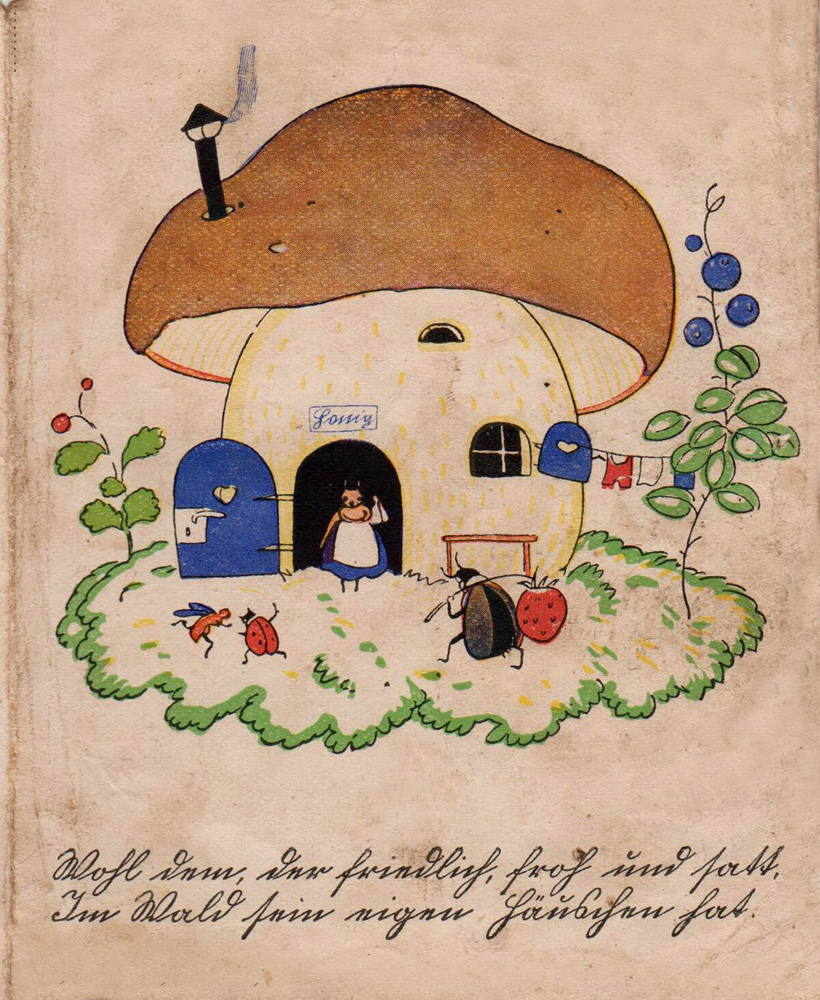 Honig
Wohl dem, der friedlich, froh und satt,
Im Wald sein eigen Häuschen hat.